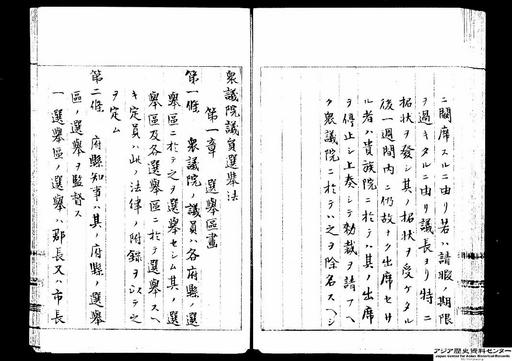 ニ闕席スルニ由リ若ハ請暇ノ期限
ヲ過キタルニ由リ議長ヨリ特ニ
招状ヲ發シ其ノ招状ヲ受ケタル
後一週間内ニ仍故ナク出席セサ
ル者ハ貴族院ニ於テハ其ノ出席
ヲ停止シ上奏シテ勅裁ヲ請フヘ
ク衆議院ニ於テハ之ヲ除名スヘシ
衆議院議員選擧法
第一章 選擧區畫
第一條 衆議院ノ議員ハ各府縣ノ選
擧區ニ於テ之ヲ選擧セシム其ノ選
擧區及各選擧區ニ於テ選擧スヘ
キ定員ハ此ノ法律ノ附録ヲ以テ之
ヲ定ム
第二條 府縣知事ハ其ノ府縣ノ選擧
區ノ選擧ヲ監督ス
一選擧區ノ選擧ハ郡長又ハ市長
アジア歴史資料センター
Japan Center for Asian Historical Records